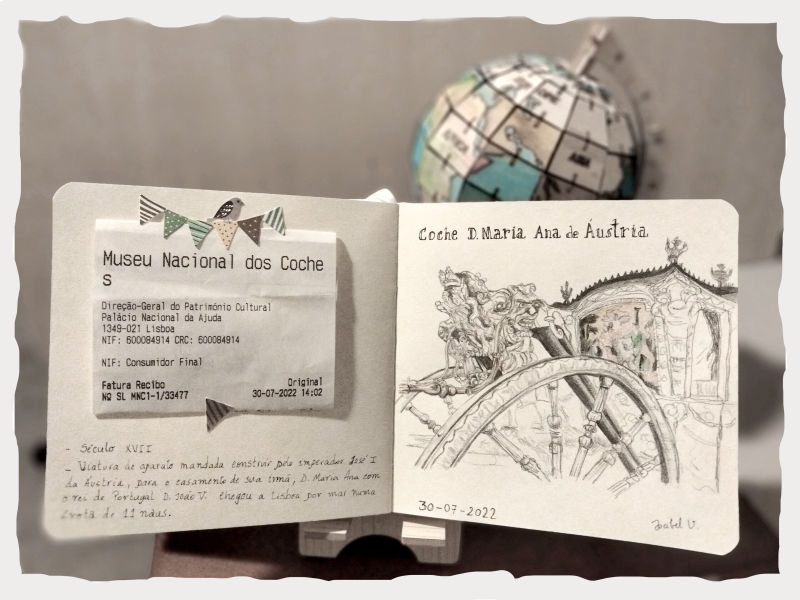 Museu Nacional dos Coche
s
Direção-Geral do Património Cultural
Palácio Nacional da Ajuda
1349-021 Lisboa
NIF: 600084914 CRC: 600084914
NIF: Consumidor Final
Fatura Recibo Original
NQ SL MNC1-1/33477 30-07-2022 14:02
- Século XVII
- Viatura de aparato mandada construir pelo imperador José I
da Áustria, para o casamento de sua irmã, D. Maria Ana com
o rei de Portugal D. João V. Chegou a Lisboa por mar numa
frota de 11 naus.
Coche D. Maria Ana de Áustria
30-07-2022
Isabel V.